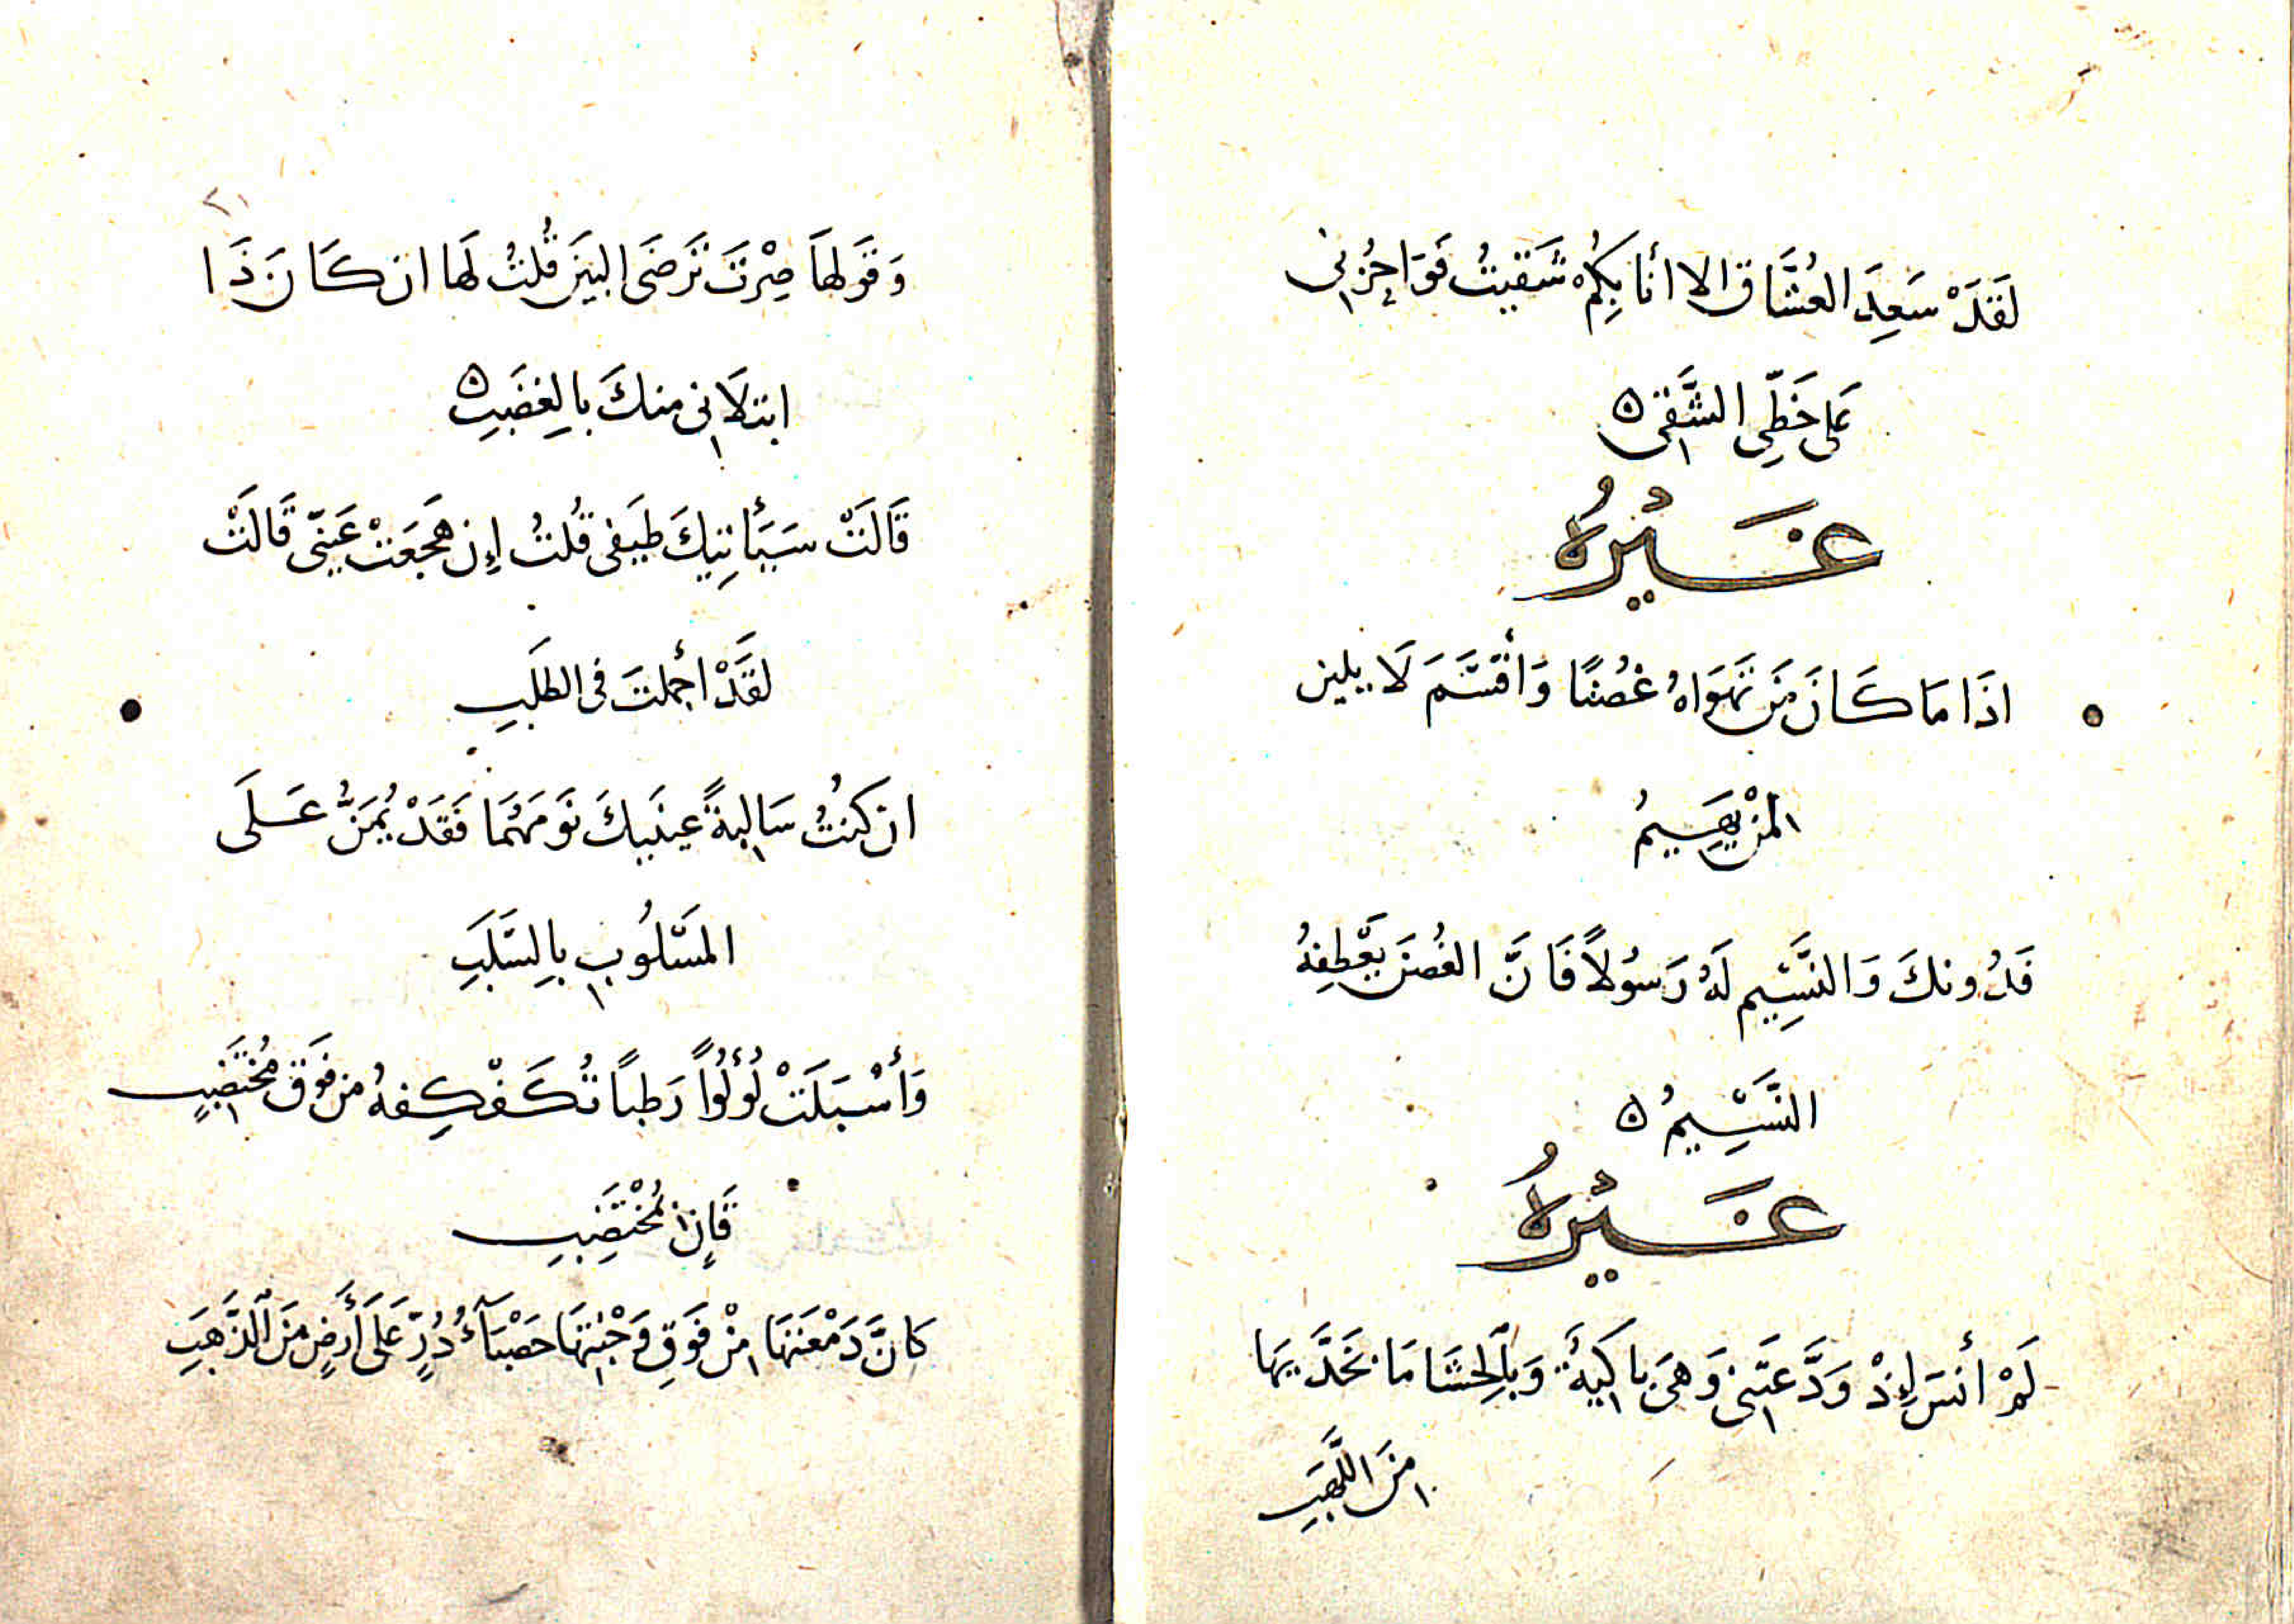 لَقَدْ سَعِدَ العُشَّاق الا أنا بِكُم شَقيتُ فَوَاحُزْنِي
عَلى حَظِّي الشَّقِي ۵
غَيْرُهُ
اذَا مَا كَانَ مَن تَهوَاهُ غُصْنًا وَأقسَمَ لَا يلين
لمَنْ يَهِيمُ
فَدُونكَ وَالنَّسِيم لَهُ رَسُولًا فَانَّ الغُصنَ يَعْطِفهُ
النَّسِيمُ ۵
غَيْرُهُ
لَمْ أنسَ إِذْ وَدَّعَتني وَهيَ باكيَةً وَبِالحَشَا مَا بخَدَّيهَا
مِنَ اللَّهَبِ
٢١
وَقَولهَا صِرْتَ تَرضَى البينَ قُلتُ لَها ان كَانَ ذَا
ابتلَانى منكَ بالغضَبِ ۵
قَالَتْ سَيَأتِيكَ طَيفى قُلتُ إِن هَجَعَتْ عَينى قَالَتْ
لقَدْ أجملتَ فى الطلَبِ
ان كنتُ سَالبةً عينَيكَ نَومَهُمَا فَقَدْ يُمَنُّ عَلَى
المَسْلُوبِ بِالسَّلَبِ
وَأسْبَلَتْ لُؤلُؤًا رَطبًا تُكَفْكِفهُ من فَوقَ مُختَضَبٍ
قَانٍ لمُخْتَضِبِ
كَانَّ دَمْعَتهَا مِنْ فَوقِ وَجْنتهَا حَصْبَآءُ دُرٍّ عَلَى أَرضٍ مِنَ الذَّهَبِ